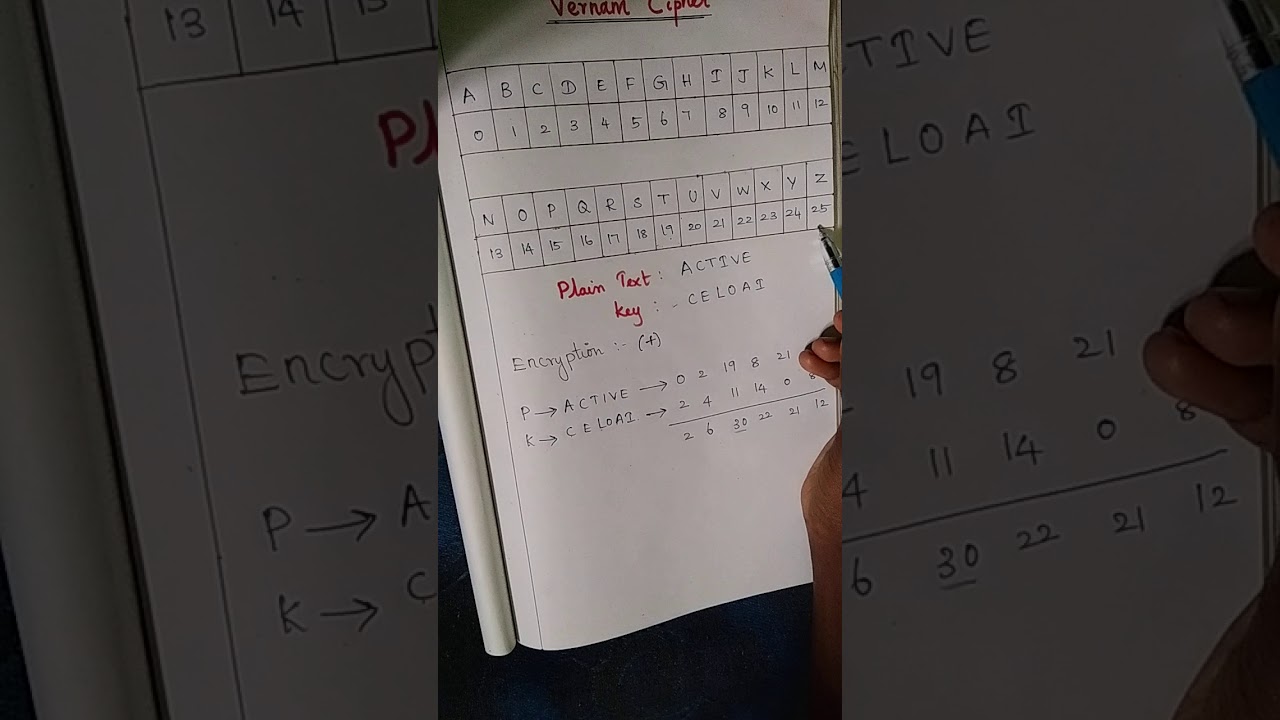 Vernam Cipher
A B C D E F G H I J K L M
0 1 2 3 4 5 6 7 8 9 10 11 12
N O P Q R S T U V W X Y Z
13 14 15 16 17 18 19 20 21 22 23 24 25
Plain Text : ACTIVE
Key :- CELOAI
Encryption :- (+)
P → ACTIVE → 0 2 19 8 21
K → CELOAI → 2 4 11 14 0 8
2 6 30 22 21 12